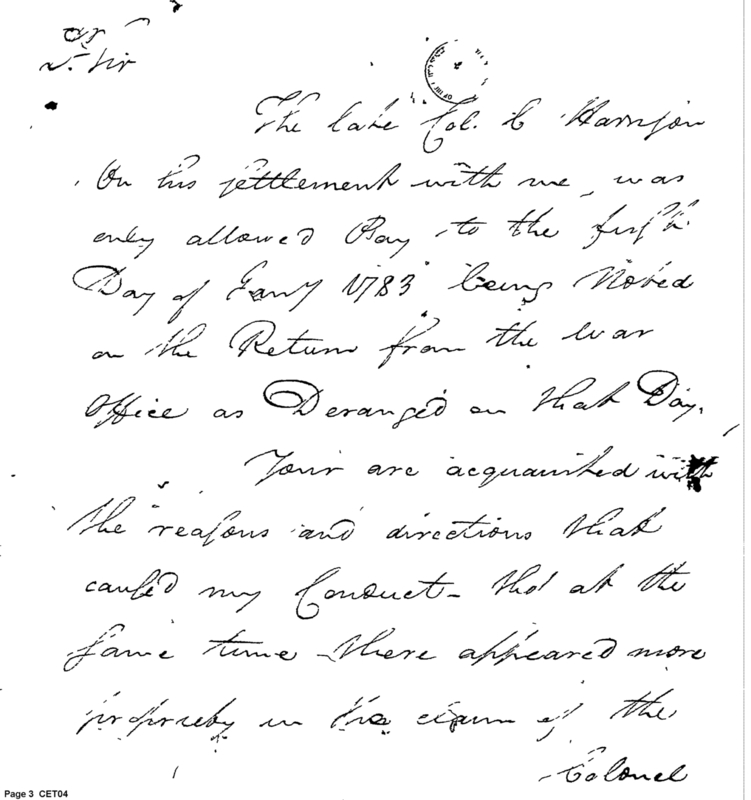 Dr Sir
The late Col. C Harrison
On his settlement with me, was
only allowed Pay to the first
Day of Jany 1783 being Noted
on the Return from the War
Office as Deranged on that Day.
Your are acquainted with
the reasons and directions that
caused my Conduct - tho' at the
same time - there appeared more
propriety in the claim of the
Colonel
Page 3 CET04